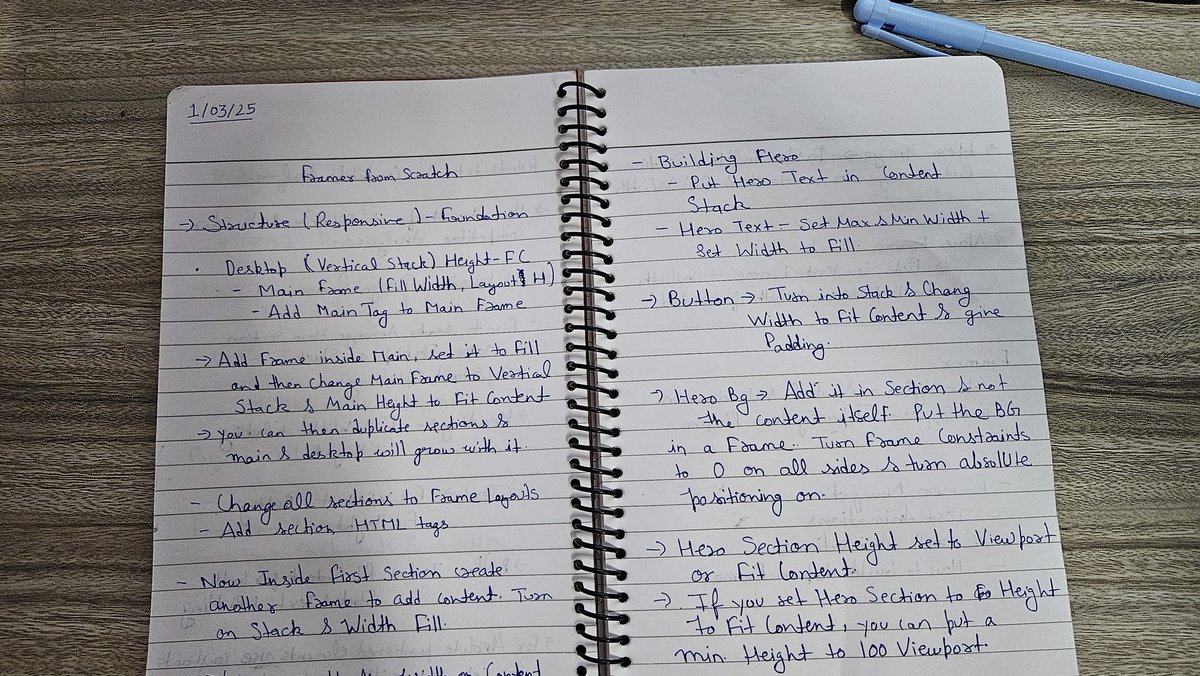 1/03/25
Framer from Scratch
→ Structure (Responsive) - Foundation
· Desktop (Vertical Stack) Height-FC
- Main Frame (Fill Width, Layout H)
- Add Main Tag to Main Frame
→ Add Frame inside Main, set it to fill
and then change Main Frame to Vertical
Stack & Main Height to Fit Content
→ you can then duplicate sections &
main & desktop will grow with it.
- Change all sections to Frame Layouts
- Add section HTML tags
- Now Inside first Section create
another frame to add content. Turn
on Stack & Width Fill.
width on Content
- Building Hero
- Put Hero Text in Content
Stack
- Hero Text = Set Max & Min Width +
Set Width to Fill.
→ Button → Turn into Stack & Chang
Width to Fit Content & give
Padding.
→ Hero Bg → Add it in Section & not
the content itself. Put the BG
in a Frame. Turn Frame Constraints
to 0 on all sides & turn absolute
positioning on.
→ Hero Section Height set to Viewport
or Fit Content.
→ If you set Hero Section to Height
to Fit Content, you can put a
min. Height to 100 Viewport.